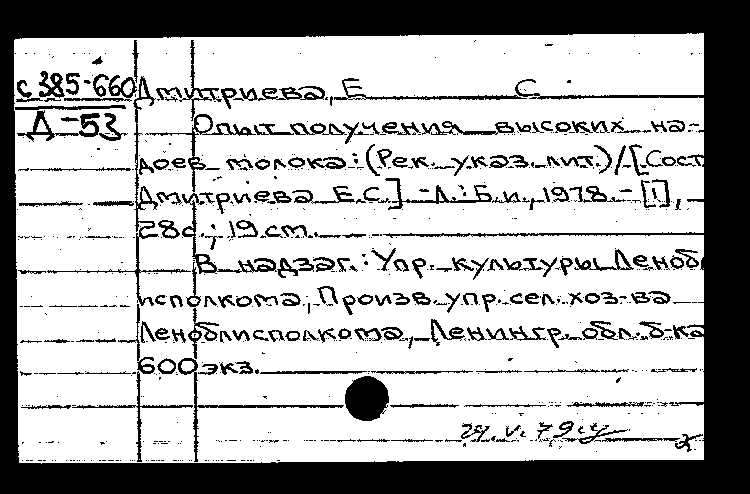 с 385-660 Дмитриева, Е С
Д-53 Опыт получения высоких на-
доев молока: (Рек. указ. лит.)/[Сост.
Дмитриева Е.С.] -Л.: Б.и., 1978.- [1],
28с.; 19 см.
В надзаг.: Упр. культуры Ленобл
исполкома, Произв. упр. сел. хоз-ва
Леноблисполкома, Ленингр. обл. б-ка
600 экз.
29. V. 79